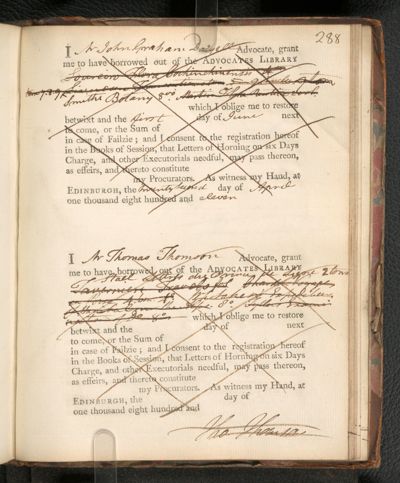 288
I Mr John Graham Dalyell Advocate, grant
me to have borrowed out of the ADVOCATES LIBRARY
Loureiro Flora Cochinchinensis
Smiths Botany 8vo
which I oblige me to restore
betwixt and the first day of June next
to come, or the Sum of
in case of Failzie ; and I consent to the registration hereof
in the Books of Session, that Letters of Horning on six Days
Charge, and other Executorials needful, may pass thereon,
as effeirs, and thereto constitute
my Procurators. As witness my Hand, at
EDINBURGH, the twenty second day of April
one thousand eight hundred and eleven
I Mr Thomas Thomson Advocate, grant
me to have borrowed out of the ADVOCATES LIBRARY
which I oblige me to restore
betwixt and the day of next
to come, or the Sum of
in case of Failzie ; and I consent to the registration hereof
in the Books of Session, that Letters of Horning on six Days
Charge, and other Executorials needful, may pass thereon,
as effeirs, and thereto constitute
my Procurators. As witness my Hand, at
EDINBURGH, the day of
one thousand eight hundred and
Tho Thomson